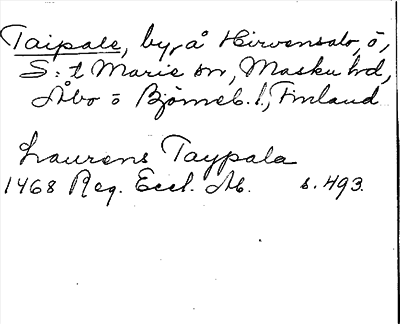 Taipale, by, å Hirvensalo, ö,
S:t Marie sn, Masku hd,
Åbo o Björneb. l., Finland
Laurens Taypala
1468 Reg. Eccl. Ab. s. 493.